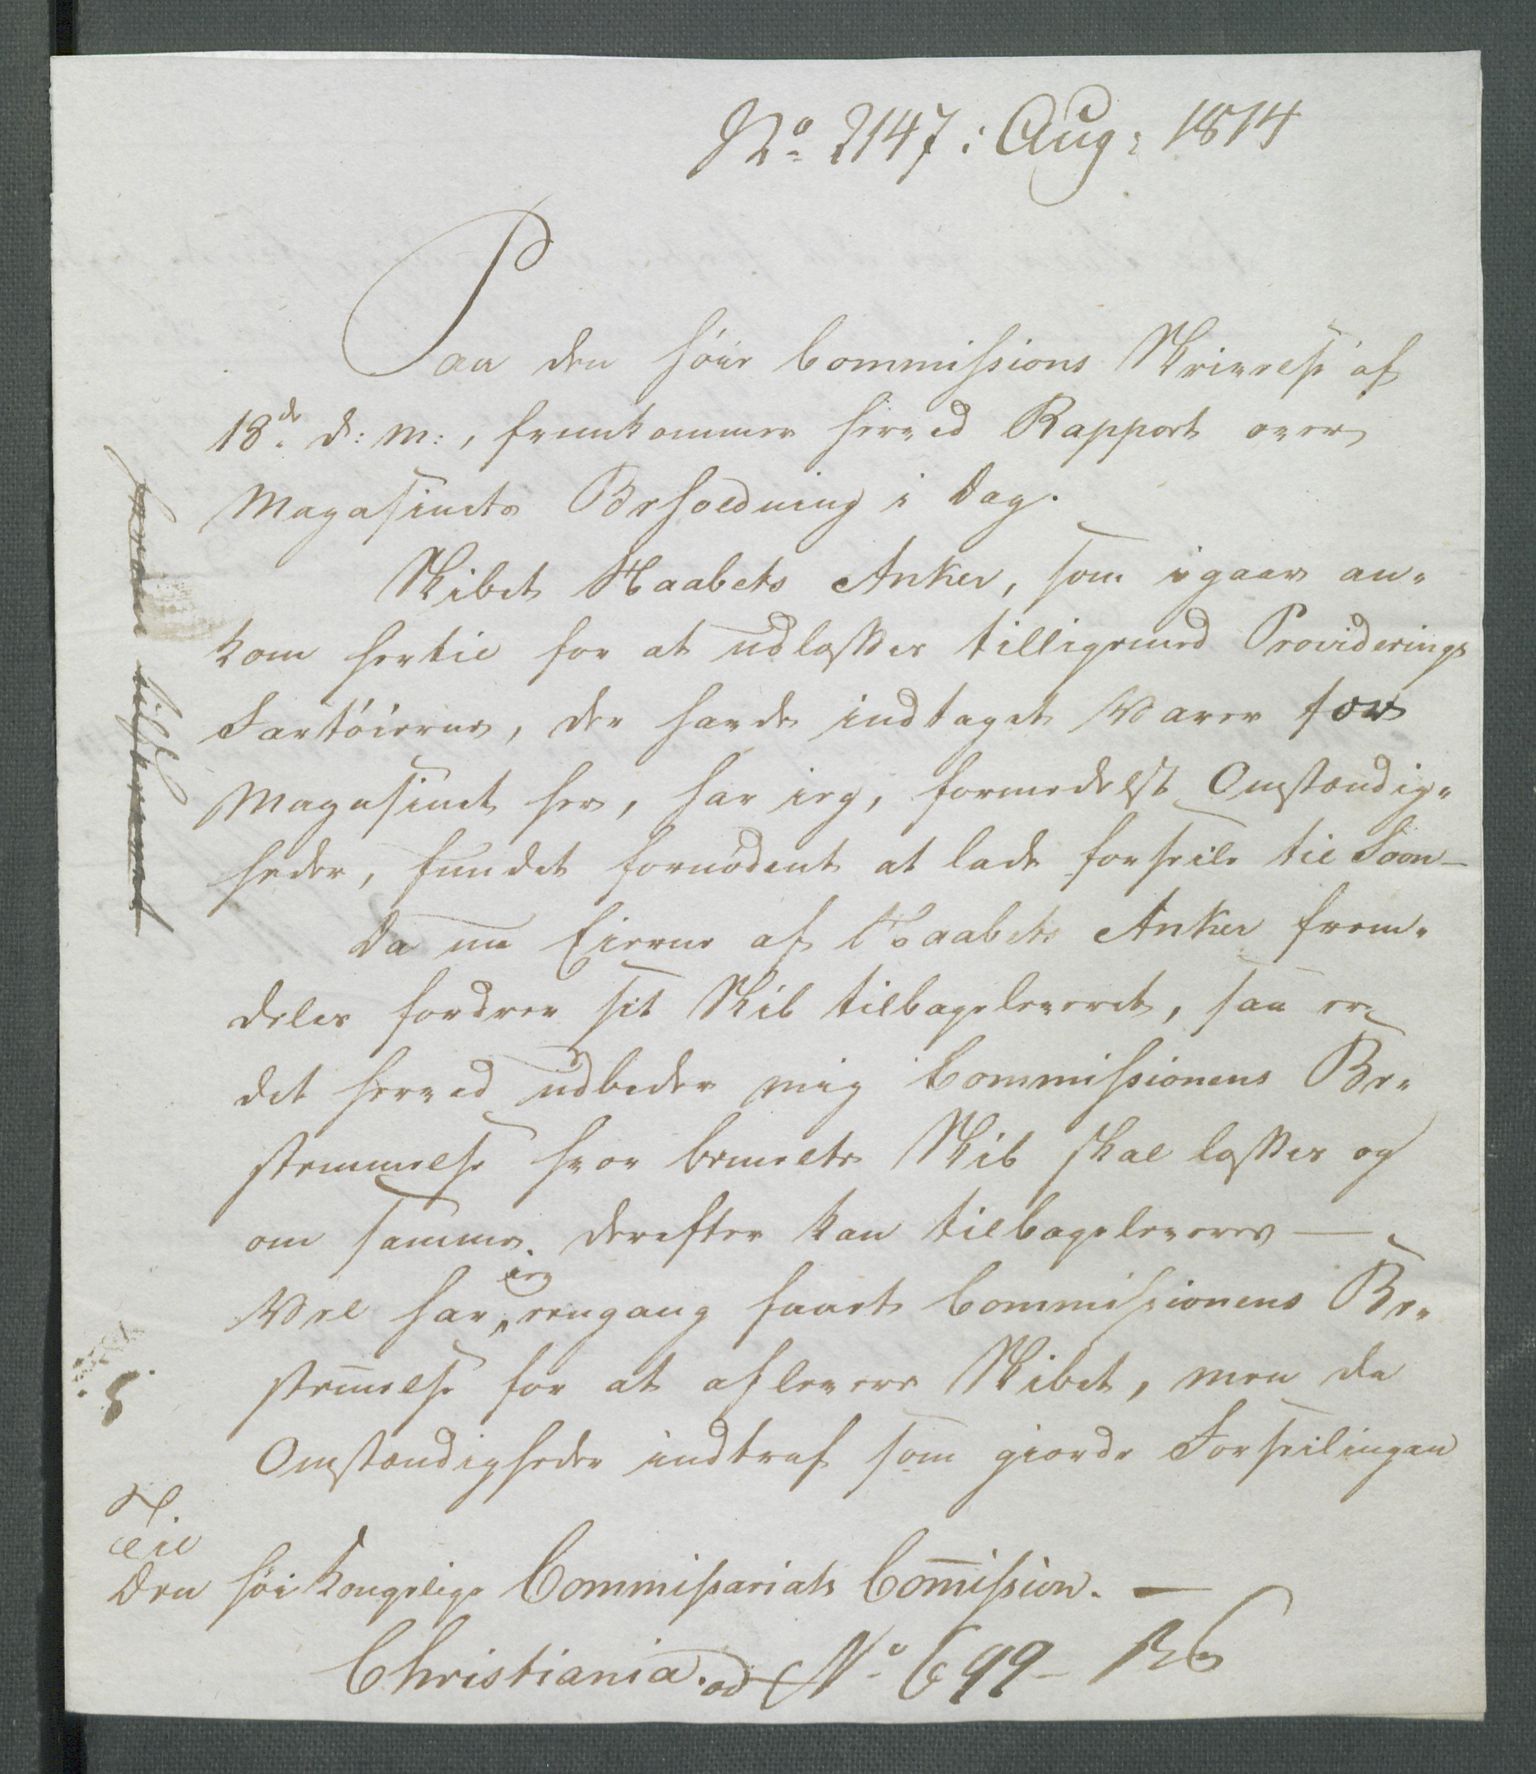 No 2147: Aug: 1814
Paa den høie Commissions Skrivelse af
18de d: M:, fremkommer herved Rapport over
Magasinets Beholdning i Dag.
Skibet Haabets Anker, som igaar an-
kom hertil for at udlosses tilligemed Providerings
Fartøierne, der havde indtaget Varer for
Magasinet her, har ieg, formedelst Omstændig-
heder, fundet fornødent at lade forseile til Soon-
Da nu Eierne af Haabets Anker frem-
deles fordrer sit Skib tilbageleveret, saa er
det herved udbeder mig Commissionens Be-
stemmelse hvor bemelte Skib skal losses og
om samme derefter kan tilbageleveres —
Vel har ieg eengang faaet Commissionens Be-
stemelse for at aflevere Skibet, men da
Omstændigheder indtraf som giorde Forseilingen
Til
Den høi Kongelige Commissariats Comission. —
Christiania. ad No 699